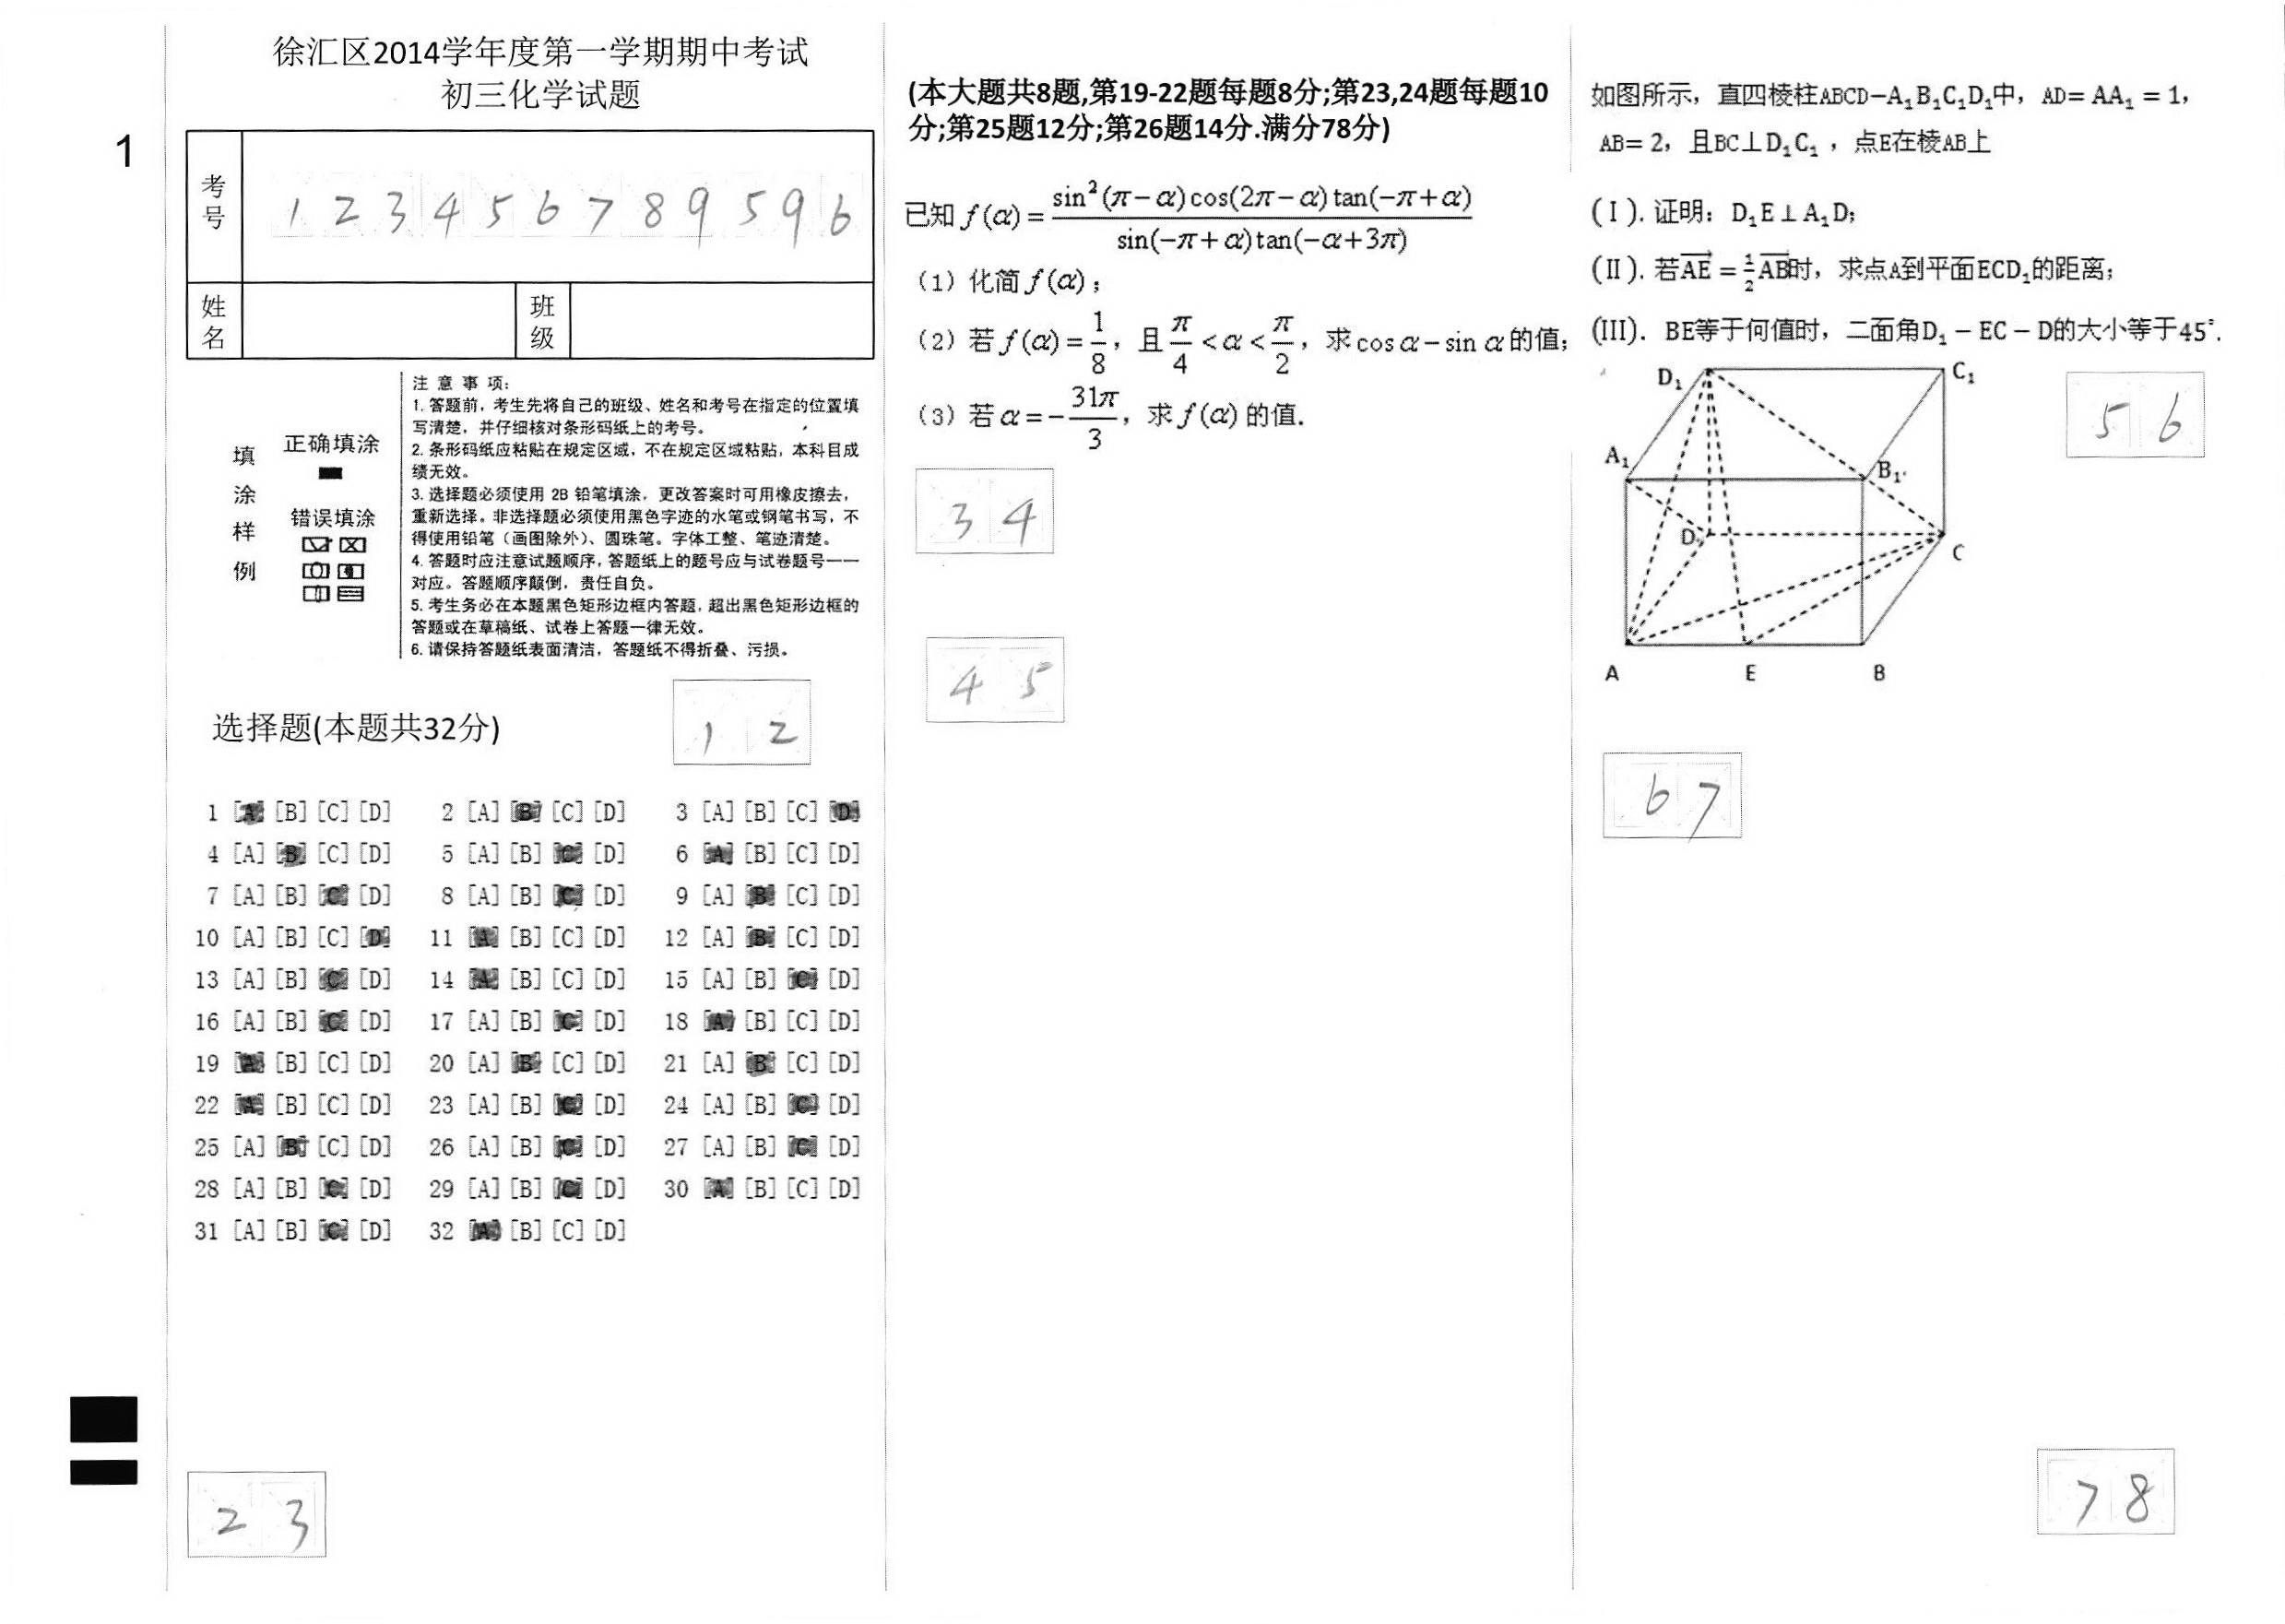 徐汇区2014学年度第一学期期中考试
初三化学试题
1
考号 1 2 3 4 5 6 7 8 9 5 9 6
姓名 班级
填涂样例
正确填涂
错误填涂
注 意 事 项:
1. 答题前,考生先将自己的班级、姓名和考号在指定的位置填
写清楚,并仔细核对条形码纸上的考号。
2. 条形码纸应粘贴在规定区域,不在规定区域粘贴,本科目成
绩无效。
3. 选择题必须使用 2B 铅笔填涂,更改答案时可用橡皮擦去,
重新选择。非选择题必须使用黑色字迹的水笔或钢笔书写,不
得使用铅笔(画图除外)、圆珠笔。字体工整、笔迹清楚。
4. 答题时应注意试题顺序,答题纸上的题号应与试卷题号一一
对应。答题顺序颠倒,责任自负。
5. 考生务必在本题黑色矩形边框内答题,超出黑色矩形边框的
答题或在草稿纸、试卷上答题一律无效。
6. 请保持答题纸表面清洁,答题纸不得折叠、污损。
选择题(本题共32分)
1 2
1 [A] [B] [C] [D] 2 [A] [B] [C] [D] 3 [A] [B] [C] [D]
4 [A] [B] [C] [D] 5 [A] [B] [C] [D] 6 [A] [B] [C] [D]
7 [A] [B] [C] [D] 8 [A] [B] [C] [D] 9 [A] [B] [C] [D]
10 [A] [B] [C] [D] 11 [A] [B] [C] [D] 12 [A] [B] [C] [D]
13 [A] [B] [C] [D] 14 [A] [B] [C] [D] 15 [A] [B] [C] [D]
16 [A] [B] [C] [D] 17 [A] [B] [C] [D] 18 [A] [B] [C] [D]
19 [A] [B] [C] [D] 20 [A] [B] [C] [D] 21 [A] [B] [C] [D]
22 [A] [B] [C] [D] 23 [A] [B] [C] [D] 24 [A] [B] [C] [D]
25 [A] [B] [C] [D] 26 [A] [B] [C] [D] 27 [A] [B] [C] [D]
28 [A] [B] [C] [D] 29 [A] [B] [C] [D] 30 [A] [B] [C] [D]
31 [A] [B] [C] [D] 32 [A] [B] [C] [D]
2 3
(本大题共8题,第19-22题每题8分;第23,24题每题10
分;第25题12分;第26题14分.满分78分)
已知 f(α) = sin²(π-α)cos(2π-α)tan(-π+α) / sin(-π+α)tan(-α+3π)
(1) 化简 f(α);
(2) 若 f(α) = 1/8, 且 π/4 < α < π/2, 求 cos α - sin α 的值;
(3) 若 α = -31π/3, 求 f(α) 的值.
3 4
4 5
如图所示, 直四棱柱ABCD-A₁B₁C₁D₁中, AD= AA₁ = 1,
AB= 2, 且BC⊥D₁C₁, 点E在棱AB上
(I). 证明: D₁E⊥A₁D;
(II). 若AE→ = 1/2 AB→时, 求点A到平面ECD₁的距离;
(III). BE等于何值时, 二面角D₁-EC-D的大小等于45°.
D₁ C₁
A₁ B₁
D C
A E B
5 6
6 7
7 8